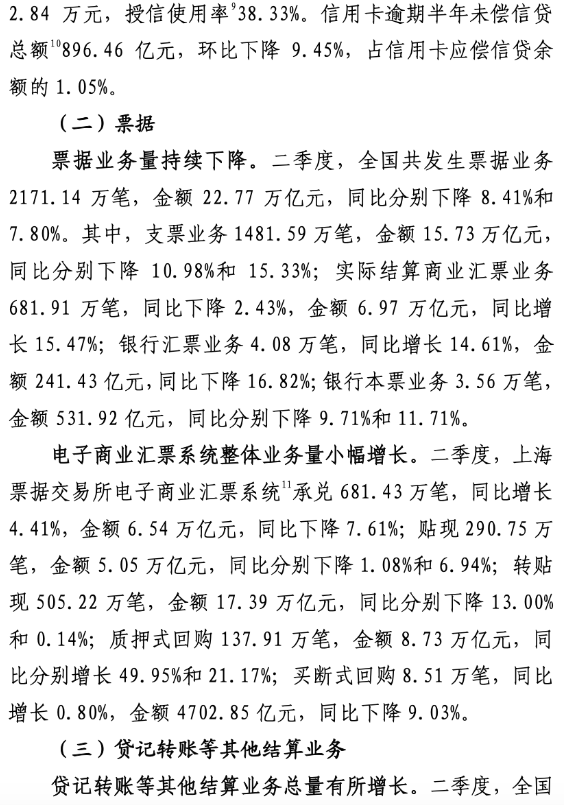 2.84 万元，授信使用率⁹38.33%。信用卡逾期半年未偿信贷
总额¹⁰896.46 亿元，环比下降 9.45%，占信用卡应偿信贷余
额的 1.05%。
（二）票据
票据业务量持续下降。二季度，全国共发生票据业务
2171.14 万笔，金额 22.77 万亿元，同比分别下降 8.41%和
7.80%。其中，支票业务 1481.59 万笔，金额 15.73 万亿元，
同比分别下降 10.98%和 15.33%；实际结算商业汇票业务
681.91 万笔，同比下降 2.43%，金额 6.97 万亿元，同比增
长 15.47%；银行汇票业务 4.08 万笔，同比增长 14.61%，金
额 241.43 亿元，同比下降 16.82%；银行本票业务 3.56 万笔，
金额 531.92 亿元，同比分别下降 9.71%和 11.71%。
电子商业汇票系统整体业务量小幅增长。二季度，上海
票据交易所电子商业汇票系统¹¹承兑 681.43 万笔，同比增长
4.41%，金额 6.54 万亿元，同比下降 7.61%；贴现 290.75 万
笔，金额 5.05 万亿元，同比分别下降 1.08%和 6.94%；转贴
现 505.22 万笔，金额 17.39 万亿元，同比分别下降 13.00%
和 0.14%；质押式回购 137.91 万笔，金额 8.73 万亿元，同
比分别增长 49.95%和 21.17%；买断式回购 8.51 万笔，同比
增长 0.80%，金额 4702.85 亿元，同比下降 9.03%。
（三）贷记转账等其他结算业务
贷记转账等其他结算业务总量有所增长。二季度，全国